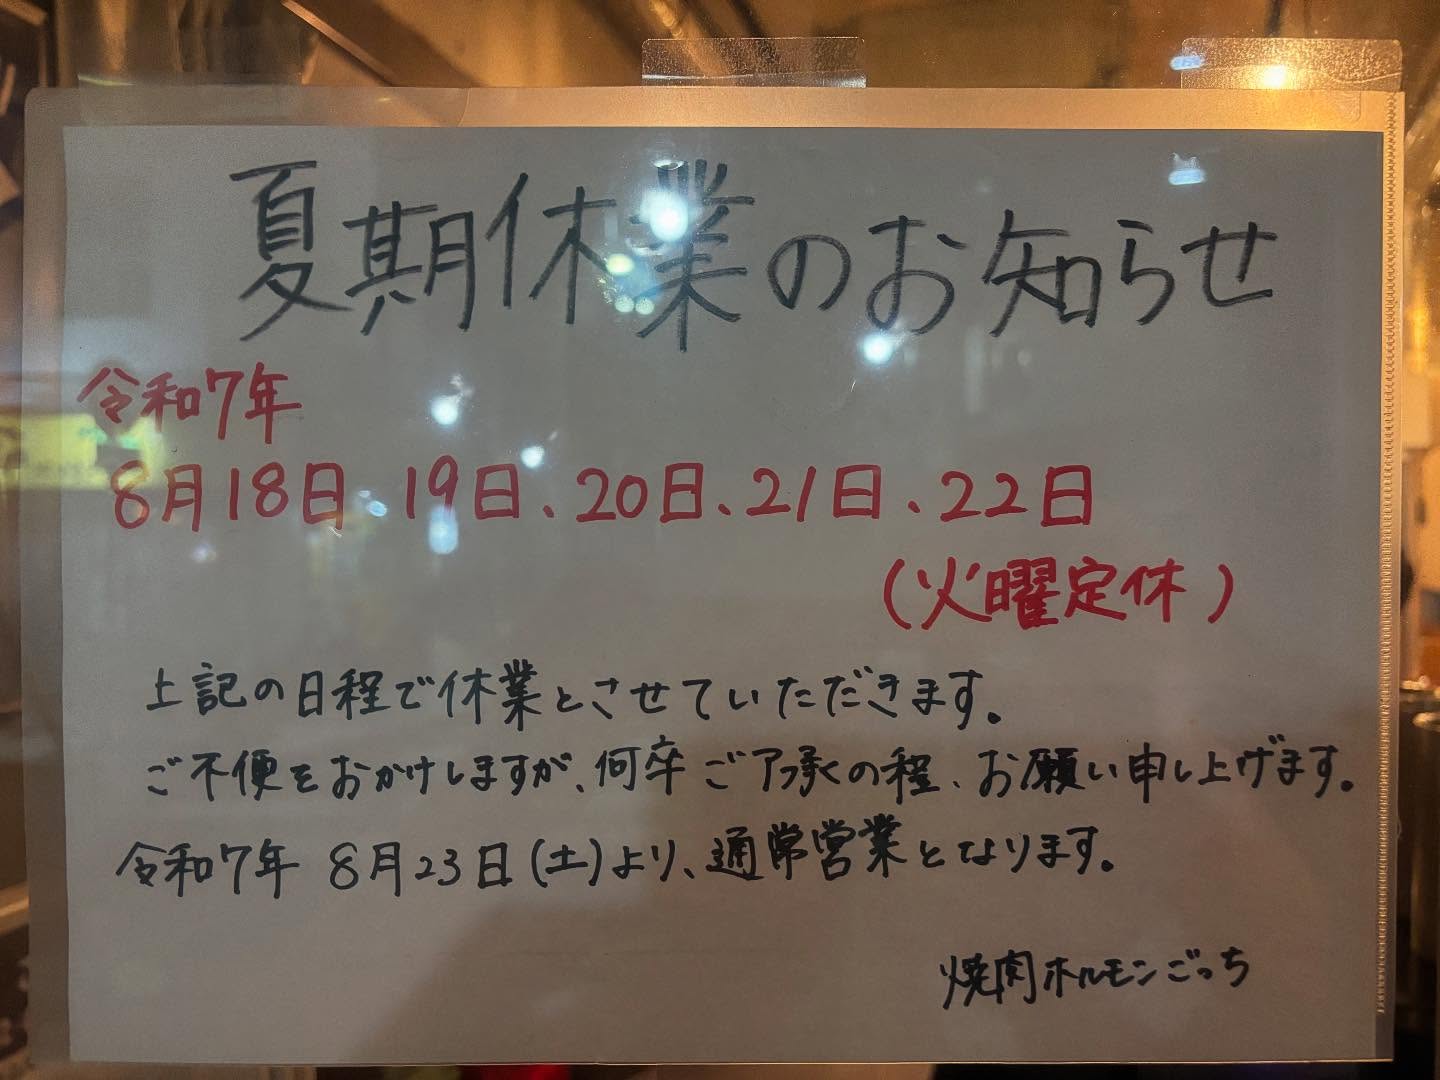 夏期休業のお知らせ
令和7年
8月18日、19日、20日、21日、22日
(火曜定休)
上記の日程で休業とさせていただきます。
ご不便をおかけしますが、何卒ご了承の程、お願い申し上げます。
令和7年 8月23日(土)より、通常営業となります。
焼肉ホルモンごっち